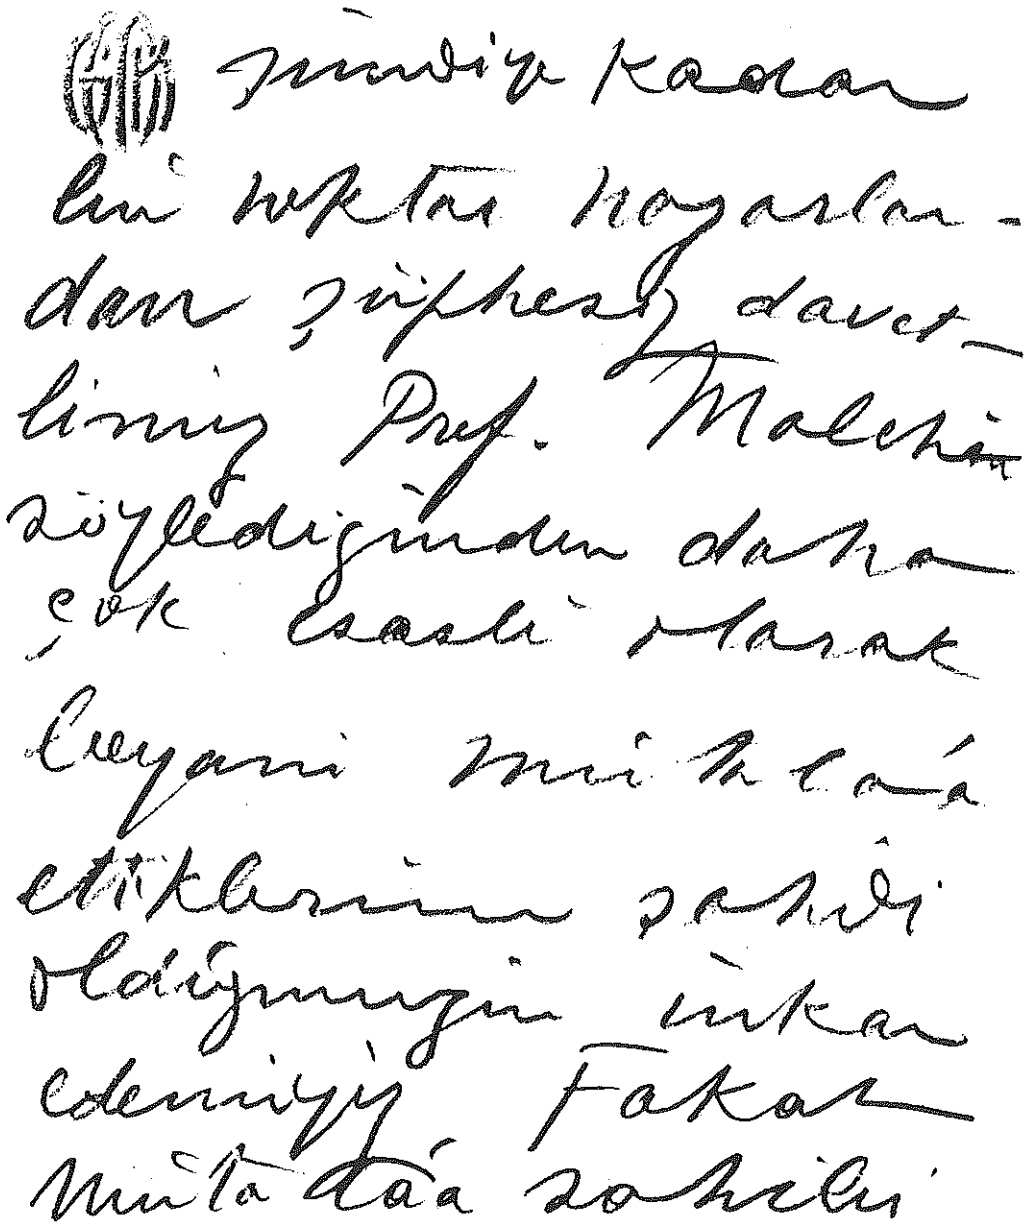 şimdiye kadar
bu noktai nazarlar-
dan şüphesiz davet-
limiz Prof. Malche'in
söylediğinden daha
çok esaslı olarak
beyanı mütalaá
ettiklerinin şahidi
olduğumuzu inkar
edemeyiz Fakat
mütalaá sahibi